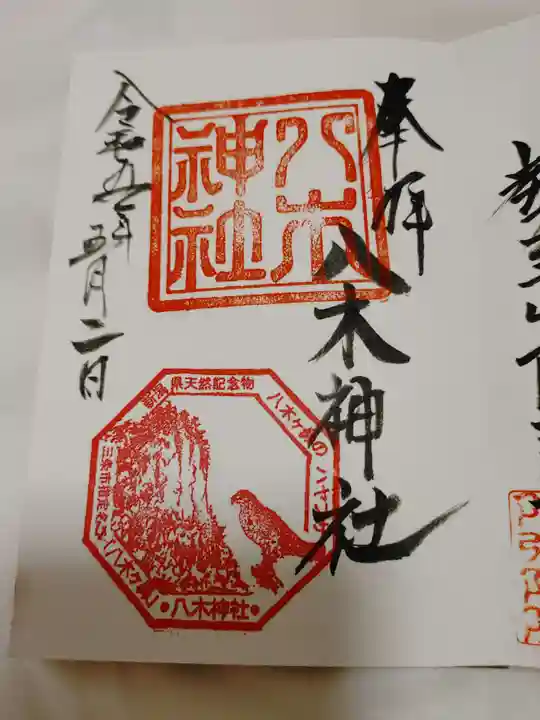 奉拝
八木
神社
八木神社
令和五年
五月二日
新潟県天然記念物
八木ヶ鼻の
ハヤブサ
三条市指定名勝(八木ヶ鼻)
・八木神社・